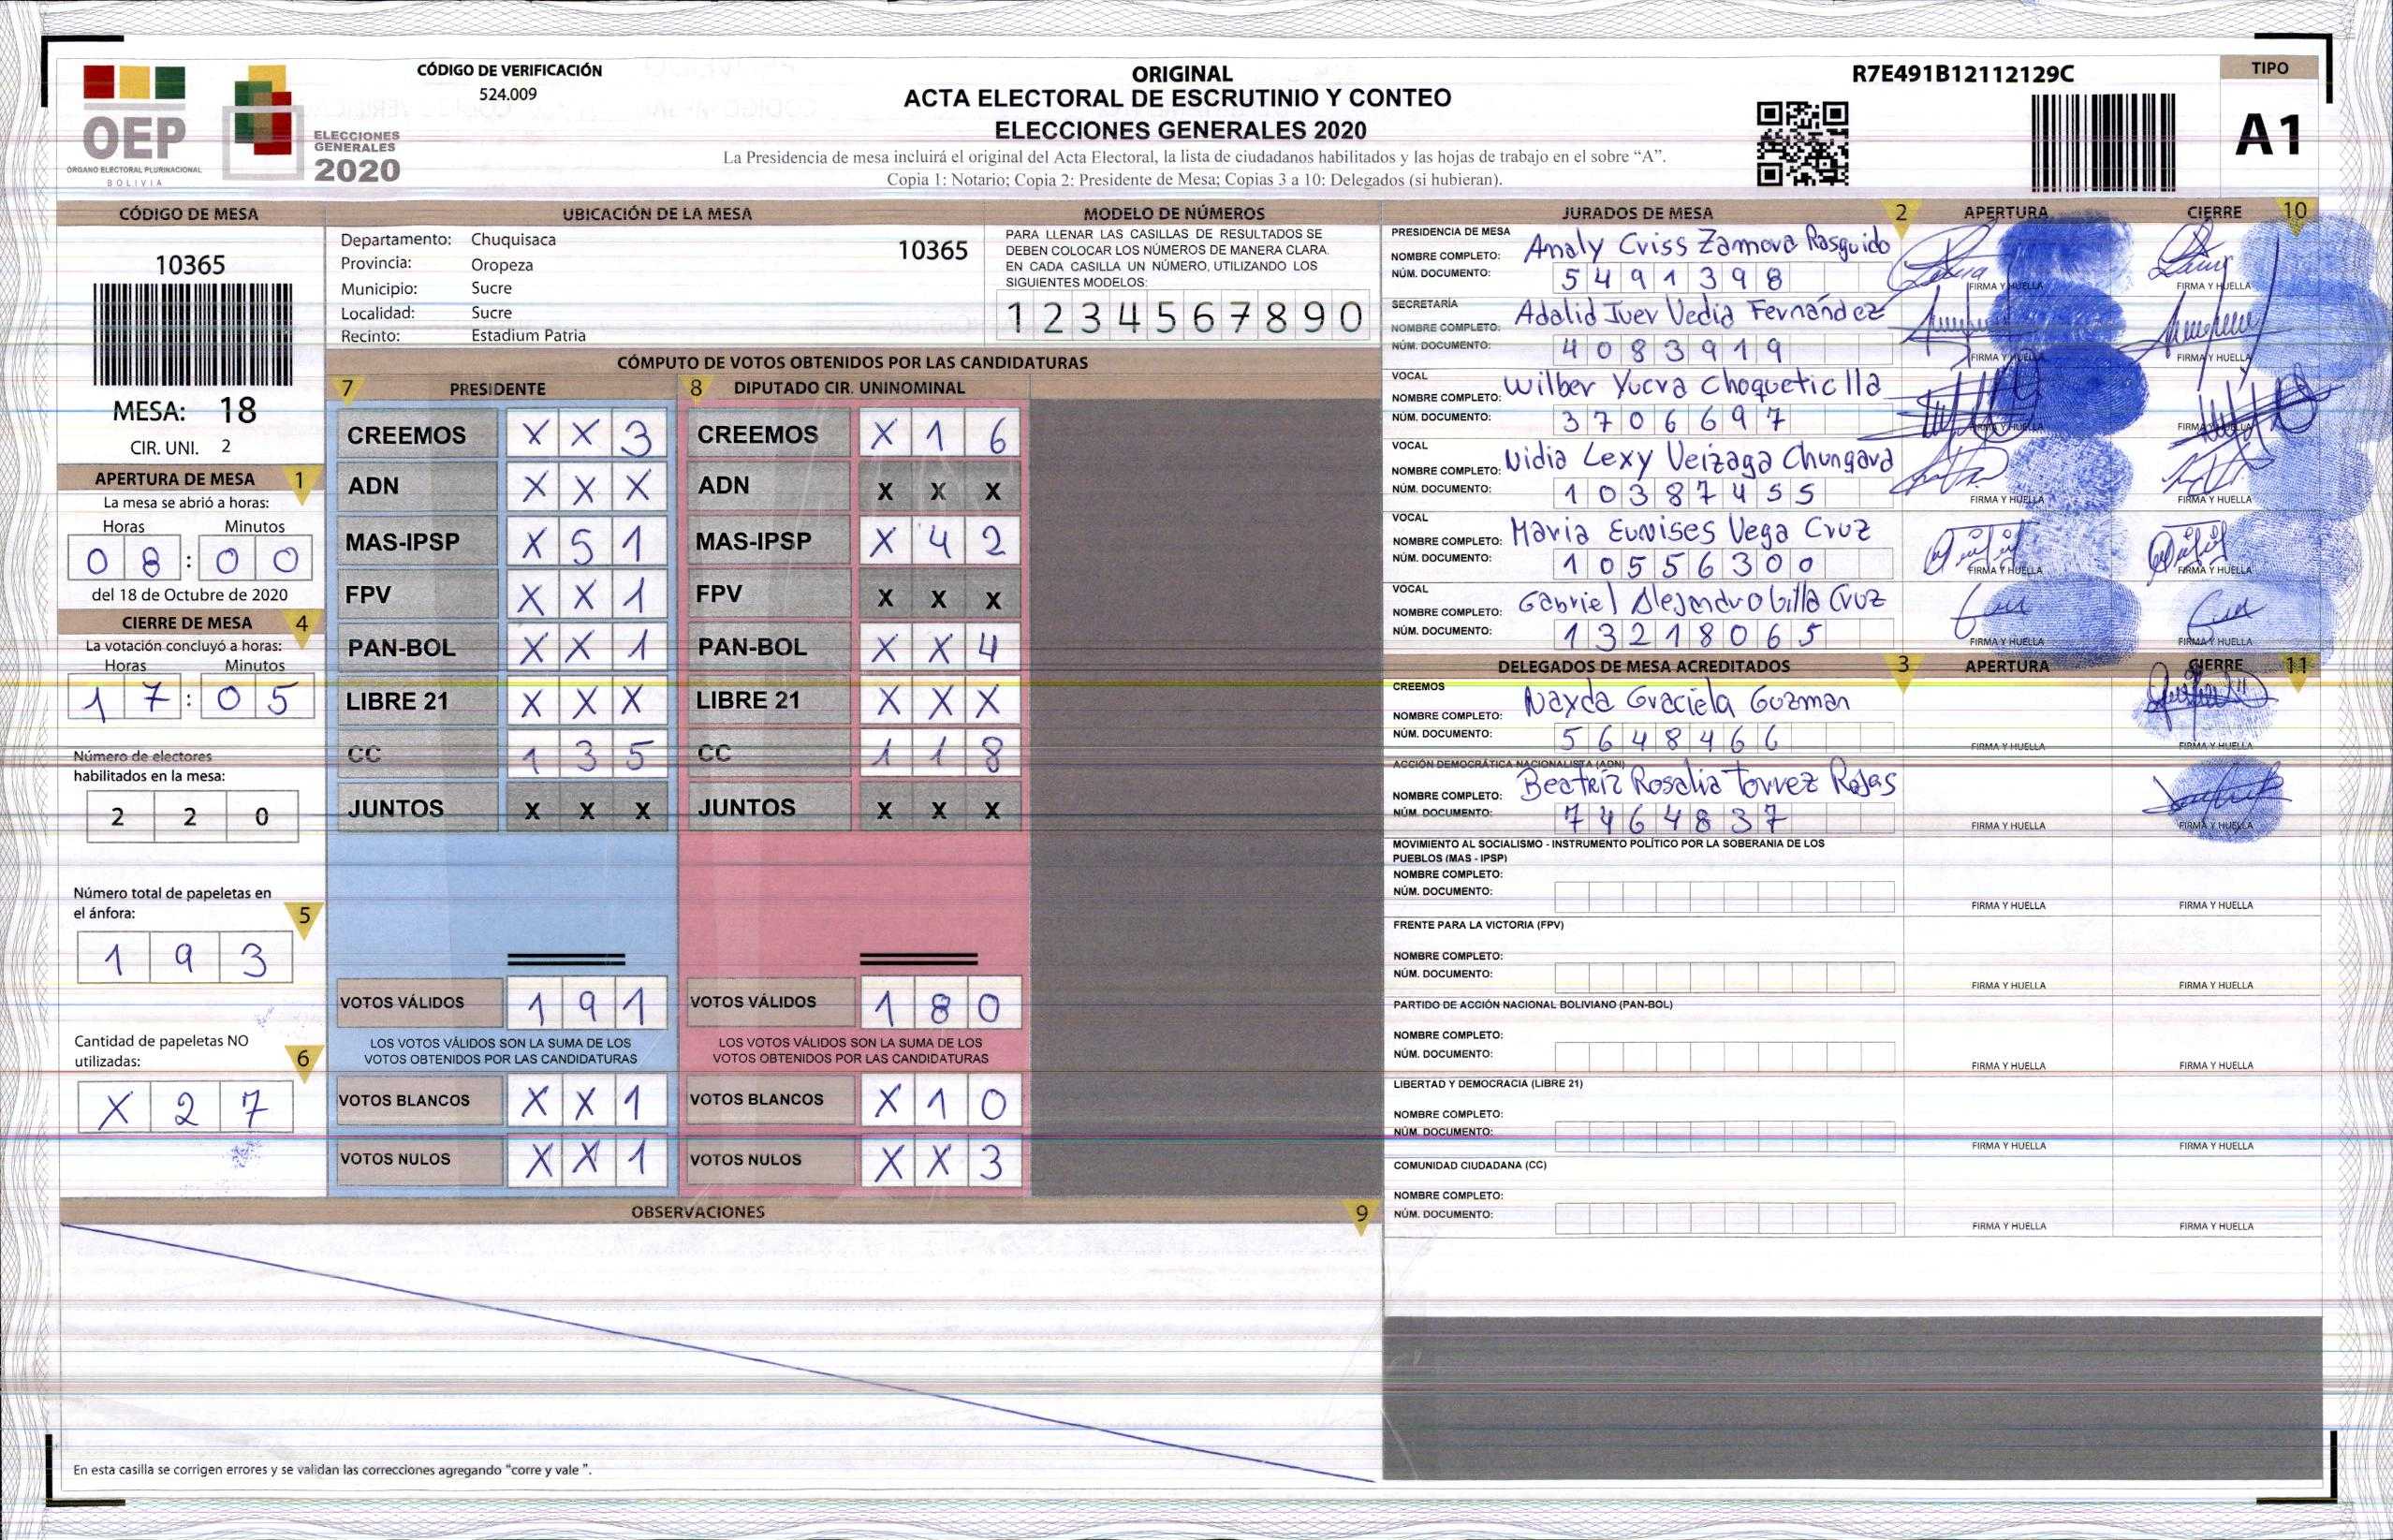 OEP
ÓRGANO ELECTORAL PLURINACIONAL
BOLIVIA
ELECCIONES
GENERALES
2020
CÓDIGO DE VERIFICACIÓN
524.009
ORIGINAL
ACTA ELECTORAL DE ESCRUTINIO Y CONTEO
ELECCIONES GENERALES 2020
La Presidencia de mesa incluirá el original del Acta Electoral, la lista de ciudadanos habilitados y las hojas de trabajo en el sobre “A”.
Copia 1: Notario; Copia 2: Presidente de Mesa; Copias 3 a 10: Delegados (si hubieran).
R7E491B12112129C
TIPO
A1
CÓDIGO DE MESA
10365
MESA: 18
CIR. UNI. 2
APERTURA DE MESA 1
La mesa se abrió a horas:
Horas Minutos
0 8 : 0 0
del 18 de Octubre de 2020
CIERRE DE MESA 4
La votación concluyó a horas:
Horas Minutos
1 7 : 0 5
Número de electores
habilitados en la mesa:
2 2 0
Número total de papeletas en
el ánfora: 5
1 9 3
Cantidad de papeletas NO
utilizadas: 6
X 2 7
UBICACIÓN DE LA MESA
Departamento: Chuquisaca 10365
Provincia: Oropeza
Municipio: Sucre
Localidad: Sucre
Recinto: Estadium Patria
MODELO DE NÚMEROS
PARA LLENAR LAS CASILLAS DE RESULTADOS SE
DEBEN COLOCAR LOS NÚMEROS DE MANERA CLARA.
EN CADA CASILLA UN NÚMERO, UTILIZANDO LOS
SIGUIENTES MODELOS:
1 2 3 4 5 6 7 8 9 0
CÓMPUTO DE VOTOS OBTENIDOS POR LAS CANDIDATURAS
7 PRESIDENTE 8 DIPUTADO CIR. UNINOMINAL
CREEMOS X X 3 CREEMOS X 1 6
ADN X X X ADN X X X
MAS-IPSP X 5 1 MAS-IPSP X 4 2
FPV X X 1 FPV X X X
PAN-BOL X X 1 PAN-BOL X X 4
LIBRE 21 X X X LIBRE 21 X X X
CC 1 3 5 CC 1 1 8
JUNTOS X X X JUNTOS X X X
VOTOS VÁLIDOS 1 9 1 VOTOS VÁLIDOS 1 8 0
LOS VOTOS VÁLIDOS SON LA SUMA DE LOS LOS VOTOS VÁLIDOS SON LA SUMA DE LOS
VOTOS OBTENIDOS POR LAS CANDIDATURAS VOTOS OBTENIDOS POR LAS CANDIDATURAS
VOTOS BLANCOS X X 1 VOTOS BLANCOS X 1 0
VOTOS NULOS X X 1 VOTOS NULOS X X 3
OBSERVACIONES 9
En esta casilla se corrigen errores y se validan las correcciones agregando “corre y vale ”.
JURADOS DE MESA 2 APERTURA CIERRE 10
PRESIDENCIA DE MESA
NOMBRE COMPLETO: Analy Criss Zamora Rasguido
NÚM. DOCUMENTO: 5 4 9 1 3 9 8 FIRMA Y HUELLA FIRMA Y HUELLA
SECRETARÍA
NOMBRE COMPLETO: Adalid Iver Vedia Fernández
NÚM. DOCUMENTO: 4 0 8 3 9 1 9 FIRMA Y HUELLA FIRMA Y HUELLA
VOCAL
NOMBRE COMPLETO: Wilber Yucra Choqueticlla
NÚM. DOCUMENTO: 3 7 0 6 6 9 7 FIRMA Y HUELLA FIRMA Y HUELLA
VOCAL
NOMBRE COMPLETO: Nidia Lexy Veizaga Chungara
NÚM. DOCUMENTO: 1 0 3 8 7 4 5 5 FIRMA Y HUELLA FIRMA Y HUELLA
VOCAL
NOMBRE COMPLETO: Maria Eunises Vega Cruz
NÚM. DOCUMENTO: 1 0 5 5 6 3 0 0 FIRMA Y HUELLA FIRMA Y HUELLA
VOCAL
NOMBRE COMPLETO: Gabriel Alejandro Cruz
NÚM. DOCUMENTO: 1 3 2 1 8 0 6 5 FIRMA Y HUELLA FIRMA Y HUELLA
DELEGADOS DE MESA ACREDITADOS 3 APERTURA CIERRE 11
CREEMOS
NOMBRE COMPLETO: Nayda Graciela Guzman
NÚM. DOCUMENTO: 5 6 4 8 4 6 6 FIRMA Y HUELLA FIRMA Y HUELLA
ACCIÓN DEMOCRÁTICA NACIONALISTA (ADN)
NOMBRE COMPLETO: Beatriz Rosalia Torrez Rojas
NÚM. DOCUMENTO: 7 4 6 4 8 3 7 FIRMA Y HUELLA FIRMA Y HUELLA
MOVIMIENTO AL SOCIALISMO - INSTRUMENTO POLÍTICO POR LA SOBERANIA DE LOS
PUEBLOS (MAS - IPSP)
NOMBRE COMPLETO:
NÚM. DOCUMENTO: FIRMA Y HUELLA FIRMA Y HUELLA
FRENTE PARA LA VICTORIA (FPV)
NOMBRE COMPLETO:
NÚM. DOCUMENTO: FIRMA Y HUELLA FIRMA Y HUELLA
PARTIDO DE ACCIÓN NACIONAL BOLIVIANO (PAN-BOL)
NOMBRE COMPLETO:
NÚM. DOCUMENTO: FIRMA Y HUELLA FIRMA Y HUELLA
LIBERTAD Y DEMOCRACIA (LIBRE 21)
NOMBRE COMPLETO:
NÚM. DOCUMENTO: FIRMA Y HUELLA FIRMA Y HUELLA
COMUNIDAD CIUDADANA (CC)
NOMBRE COMPLETO:
NÚM. DOCUMENTO: FIRMA Y HUELLA FIRMA Y HUELLA